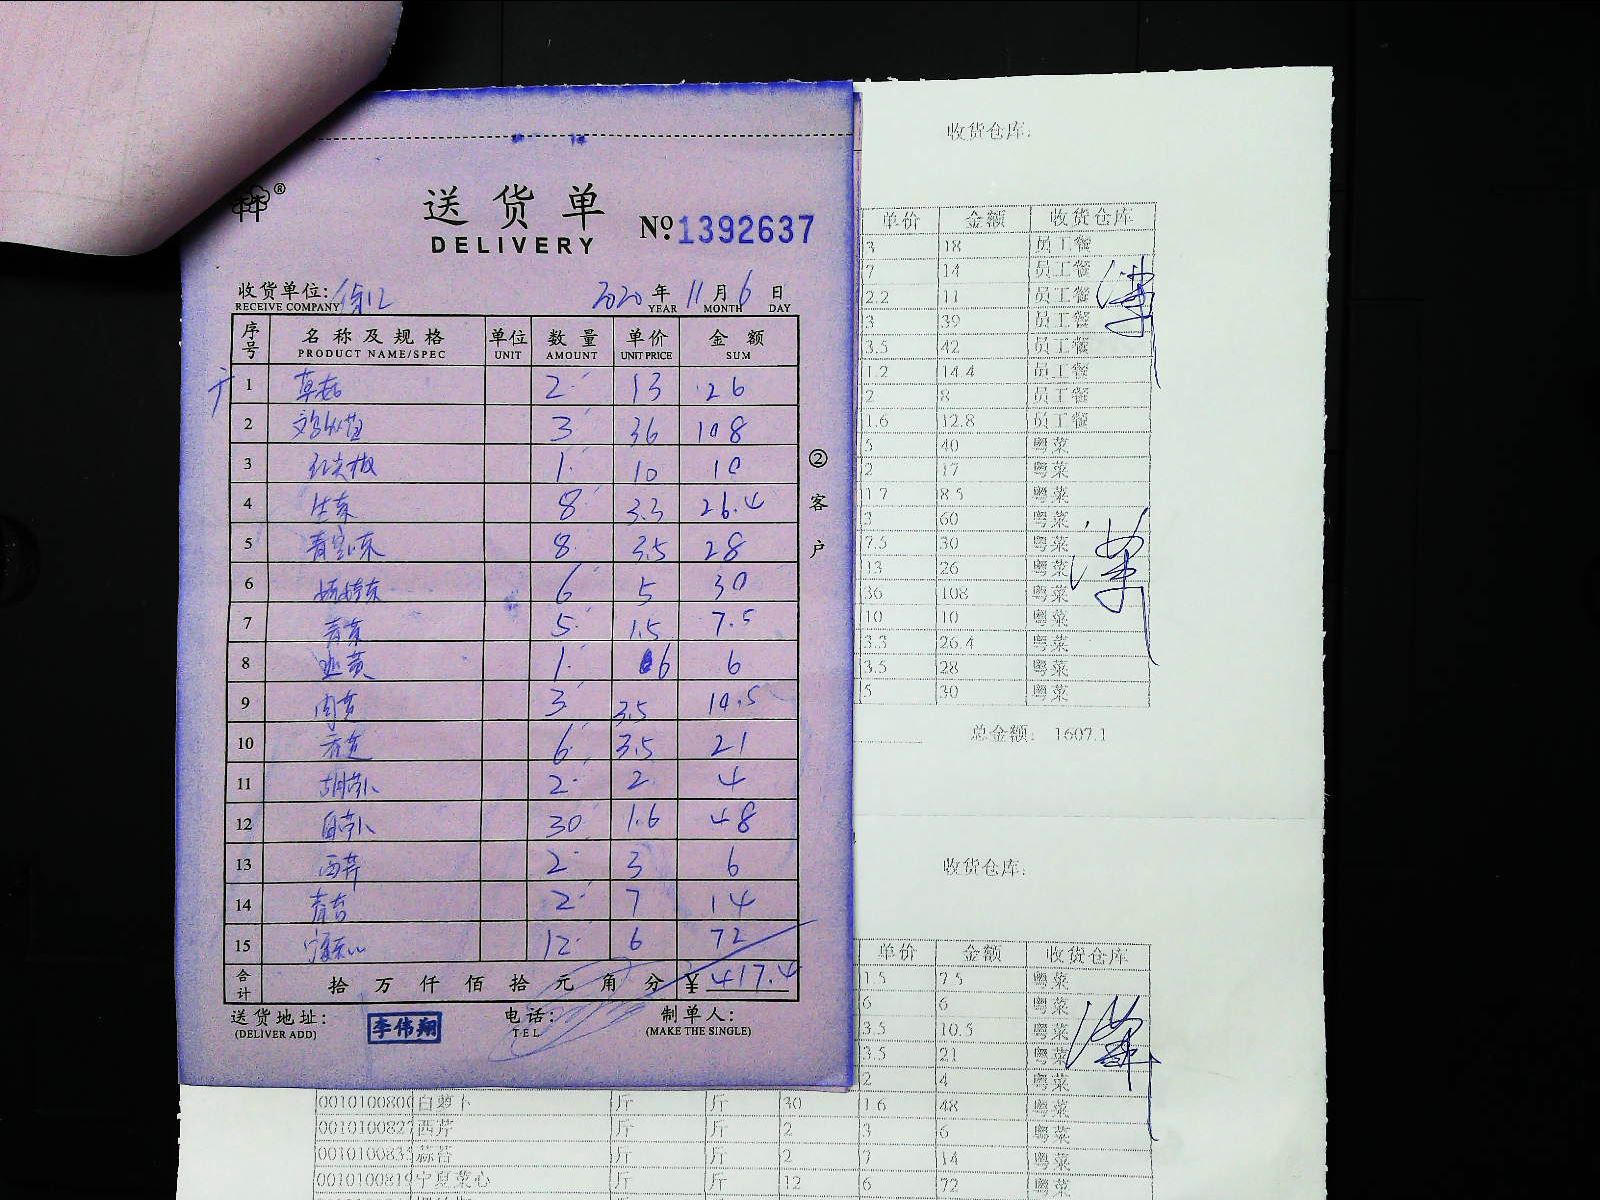 送货单
DELIVERY
№ 1392637
收货单位:
RECEIVE COMPANY
2020 年 11 月 6 日
YEAR MONTH DAY
序号 名称及规格 单位 数量 单价 金额
PRODUCT NAME/SPEC UNIT AMOUNT UNIT PRICE SUM
1 草菇 2 13 26
2 3 36 108
3 红尖椒 1 10 10
4 生菜 8 3.3 26.4
5 8 3.5 28
6 娃娃菜 6 5 30
7 青菜 5 1.5 7.5
8 韭黄 1 6 6
9 3 3.5 10.5
10 6 3.5 21
11 胡萝卜 2 2 4
12 白萝卜 30 1.6 48
13 西芹 2 3 6
14 2 7 14
15 宁夏菜心 12 6 72
合计 拾 万 仟 佰 拾 元 角 分 ¥ 417.4
送货地址:
(DELIVER ADD)
李伟翔
电话:
TEL
制单人:
(MAKE THE SINGLE)
②客户
收货仓库:
单价 金额 收货仓库
3 18 员工餐
7 14 员工餐
2.2 11 员工餐
3 39 员工餐
3.5 42 员工餐
1.2 14.4 员工餐
2 8 员工餐
1.6 12.8 员工餐
5 40 粤菜
2 17 粤菜
1.7 8.5 粤菜
3 60 粤菜
7.5 30 粤菜
13 26 粤菜
36 108 粤菜
10 10 粤菜
3.3 26.4 粤菜
3.5 28 粤菜
5 30 粤菜
总金额: 1607.1
收货仓库:
单价 金额 收货仓库
1.5 7.5 粤菜
6 6 粤菜
3.5 10.5 粤菜
3.5 21 粤菜
2 4 粤菜
0010100800 白萝卜 斤 斤 30 1.6 48 粤菜
001010082 西芹 斤 斤 2 3 6 粤菜
001010083 蒜苔 斤 斤 2 7 14 粤菜
001010081 宁夏菜心 斤 斤 12 6 72 粤菜